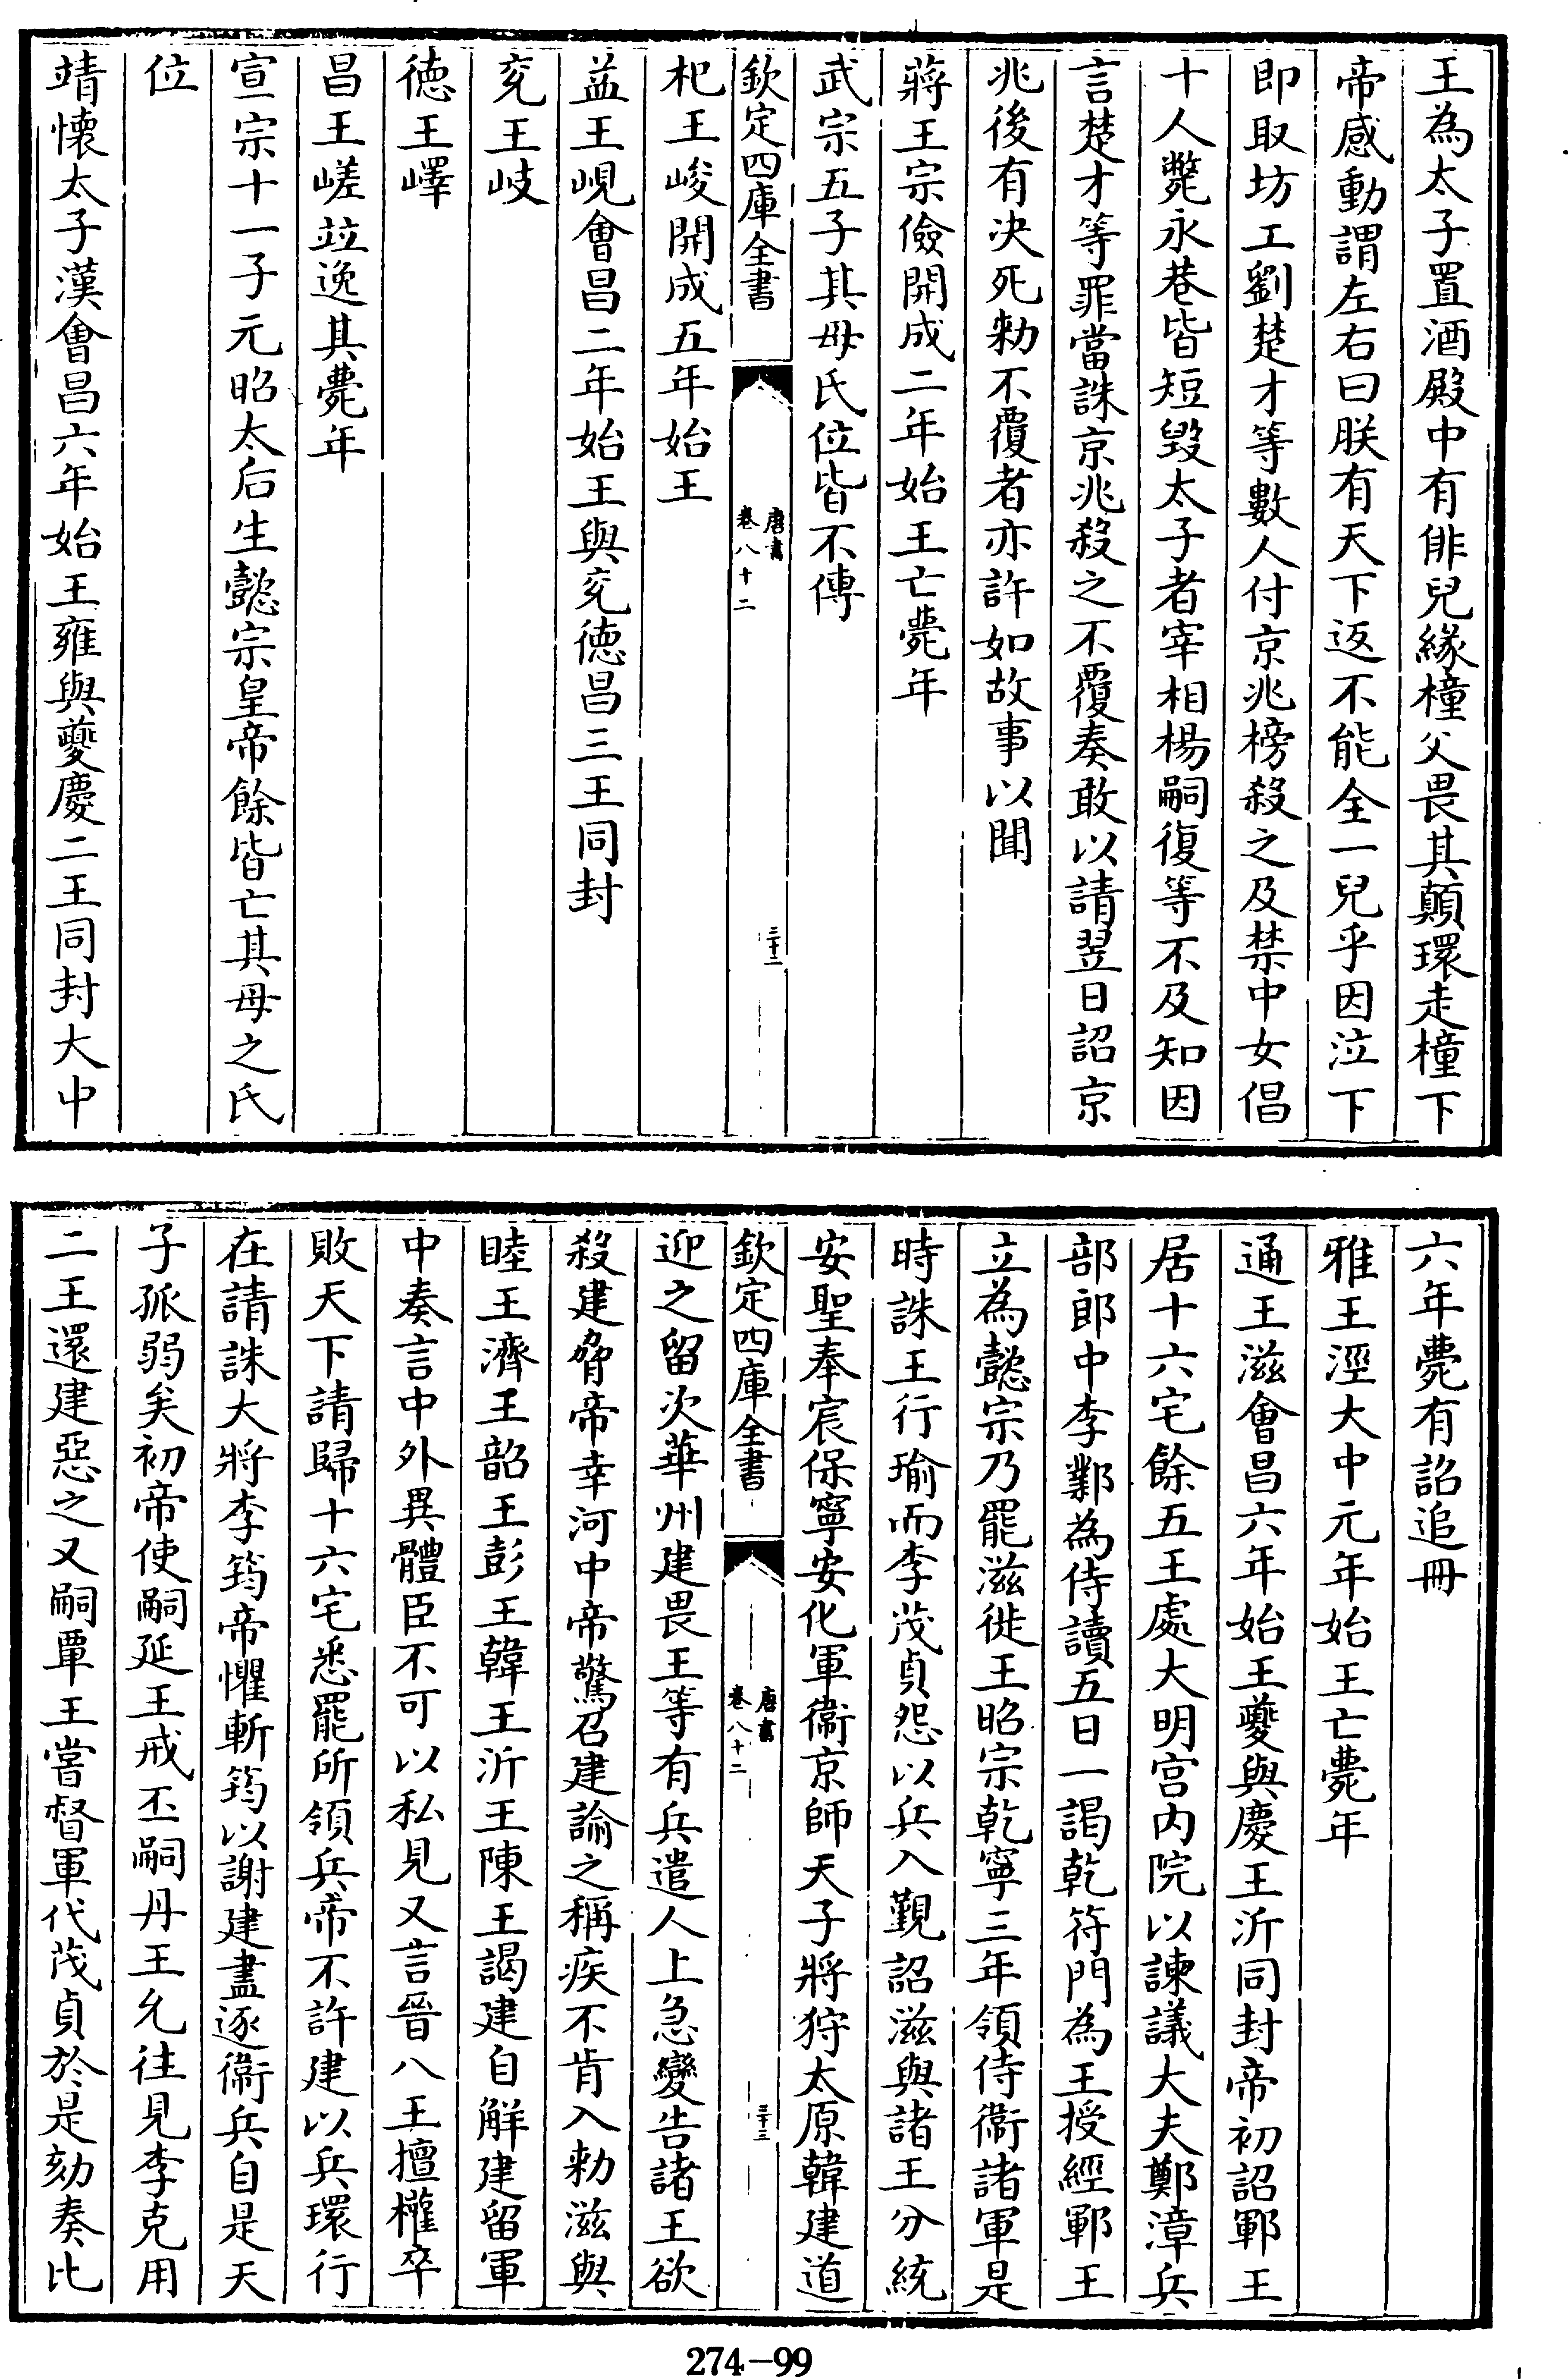 王為太子置酒殿中有俳兒緣橦父畏其顛環走橦下
帝感動謂左右曰朕有天下返不能全一兒乎因泣下
即取坊工劉楚才等數人付京兆榜殺之及禁中女倡
十人斃永巷皆短毀太子者宰相楊嗣復等不及知因
言楚才等罪當誅京兆殺之不覆奏敢以請翌日詔京
兆後有决死勑不覆者亦許如故事以聞
蔣王宗儉開成二年始王亡薨年
武宗五子其母氏位皆不傳
欽定四庫全書
唐書
卷八十二
三十二
杞王峻開成五年始王
益王峴會昌二年始王與兖德昌三王同封
兖王岐
德王嶧
昌王嵯竝逸其薨年
宣宗十一子元昭太后生懿宗皇帝餘皆亡其母之氏
位
靖懷太子漢會昌六年始王雍與夔慶二王同封大中
六年薨有詔追冊
雅王涇大中元年始王亡薨年
通王滋會昌六年始王夔與慶王沂同封帝初詔鄆王
居十六宅餘五王處大明宫内院以諫議大夫鄭漳兵
部郎中李鄴為侍讀五日一謁乾符門為王授經鄆王
立為懿宗乃罷滋徙王昭宗乾寧三年領侍衞諸軍是
時誅王行瑜而李茂貞怨以兵入覲詔滋與諸王分統
安聖奉宸保寧安化軍衞京師天子將狩太原韓建道
欽定四庫全書
唐書
卷八十二
三十三
迎之留次華州建畏王等有兵遣人上急變告諸王欲
殺建脅帝幸河中帝驚召建諭之稱疾不肯入勑滋與
睦王濟王韶王彭王韓王沂王陳王謁建自解建留軍
中奏言中外異體臣不可以私見又言晉八王擅權卒
敗天下請歸十六宅悉罷所領兵帝不許建以兵環行
在請誅大將李筠帝懼斬筠以謝建盡逐衞兵自是天
子孤弱矣初帝使嗣延王戒丕嗣丹王允往見李克用
二王還建惡之又嗣覃王嘗督軍代茂貞於是劾奏比
274-99